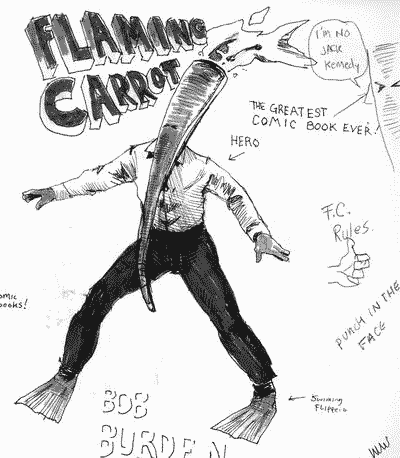 FLAMING
CARROT
I'M NO
JACK
Kennedy
THE GREATEST
COMIC BOOK EVER!
HERO
F.C.
Rules.
omic
books!
PUNCH IN THE
FACE
Swimming
BOB
BURDEN